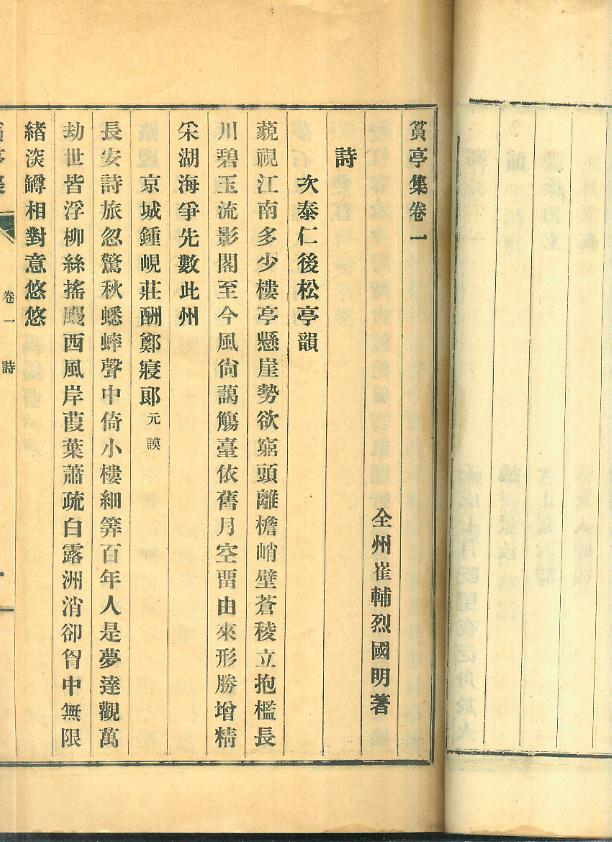 篔亭集卷一
全州崔輔烈國明著
詩
次泰仁後松亭韻
藐視江南多少樓亭懸崖勢欲竆頭離檐峭壁蒼稜立抱檻長
川碧玉流影閣至今風尙藹觴臺依舊月空畱由來形勝增精
采湖海爭先數此州
京城鍾峴莊酬鄭寢郞元謨
長安詩旅忽驚秋蟋蟀聲中倚小樓細筭百年人是夢達觀萬
劫世皆浮柳絲搖颺西風岸葭葉蕭疏白露洲消卻胷中無限
緖淡罇相對意悠悠
卷一 詩